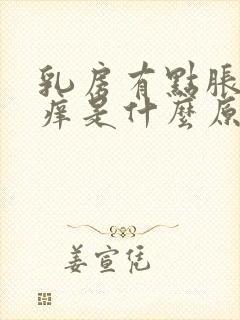 乳房有點脹
痒是什麼原
姜宣凭